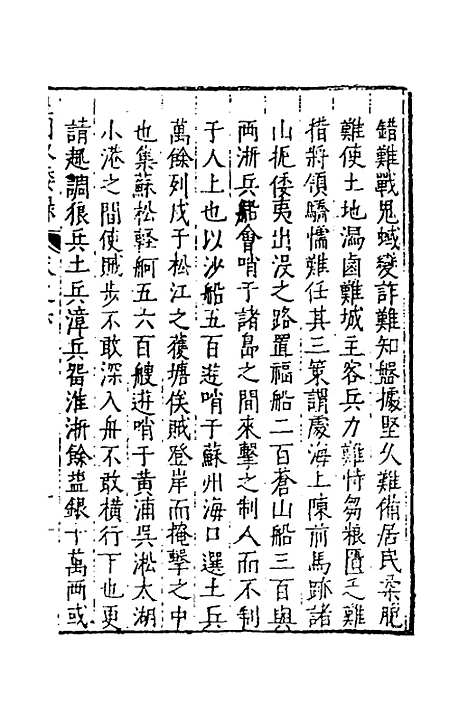 錯難戰鬼蜮變詐難知盤據堅久難備居民柔脆
難使土地瀉鹵難城主客兵力難恃芻粮匱乏難
措將領驕懦難任其三策謂處海上陳前馬跡諸
山扼倭夷出沒之路置福船二百蒼山船三百與
兩浙兵船會哨于諸島之間來擊之制人而不制
于人上也以沙船五百遊哨于蘇州海口選土兵
萬餘列戍于松江之護塘俟賊登岸而掩擊之中
也集蘇松輕舸五六百艘遊哨于黃浦吳淞太湖
小港之間使賊步不敢深入舟不敢橫行下也更
請趣調狼兵土兵漳兵留淮浙餘盐銀十萬兩或